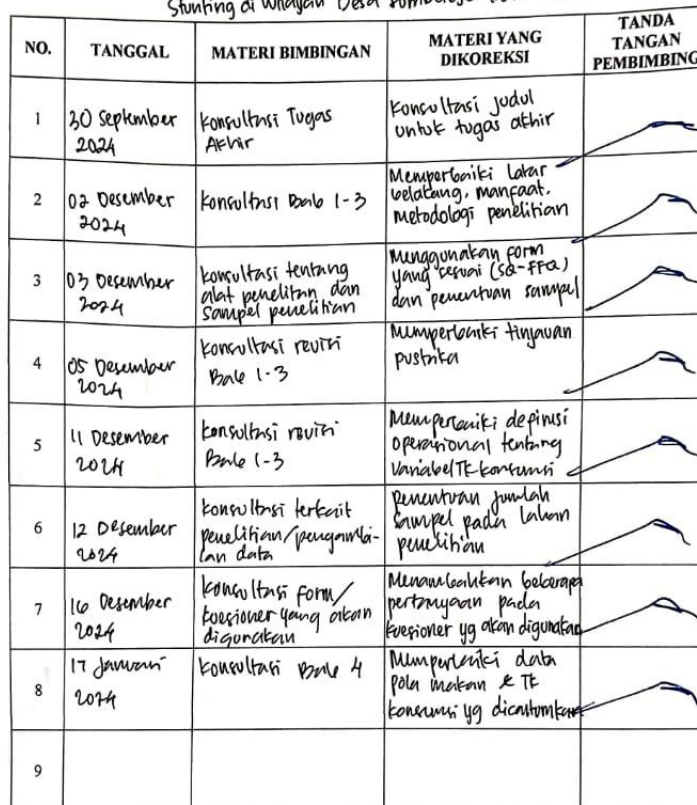 Stunting di Wilayah Desa
NO.
TANGGAL
MATERI BIMBINGAN
MATERI YANG
DIKOREKSI
TANDA
TANGAN
PEMBIMBING
1
30 September
2024
Konsultasi Tugas
Akhir
Konsultasi Judul
untuk tugas akhir
2
02 Desember
2024
Konsultasi Bab 1-3
Memperbaiki Latar
belakang, manfaat,
metodologi penelitian
3
03 Desember
2024
Konsultasi tentang
alat penelitan dan
Sampel penelitian
Menggunakan form
yang sesuai (SQ-FFQ)
dan penentuan sampel
4
05 Desember
2024
Konsultasi revisi
Bab 1-3
Memperbaiki tinjauan
pustaka
5
11 Desember
2024
Konsultasi revisi
Bab 1-3
Memperbaiki definisi
Operasional tentang
Variabel TK konsumsi
6
12 Desember
2024
Konsultasi terkait
penelitian/pengambi-
lan data
Penentuan Jumlah
Sampel pada lahan
penelitian
7
16 Desember
2024
Konsultasi form/
kuesioner yang akan
digunakan
Menambahkan beberapa
pertanyaan pada
kuesioner yg akan digunakan
8
17 Januari
2024
Konsultasi Bab 4
Memperbaiki data
pola makan & TK
konsumsi yg dicantumkan
9